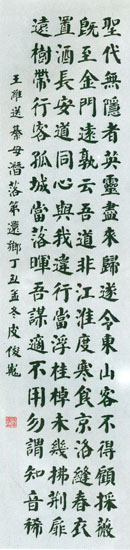 聖代無隱者英靈盡來歸遂令東山客不得顧採薇
旣至金門遠孰云吾道非江淮度寒食京洛縫春衣
置酒長安道同心與我違行當浮桂棹未幾拂荊扉
遠樹帶行客孤城當落暉吾謀適不用勿謂知音稀
王維送綦毋潛落第還鄉丁丑孟冬皮俊